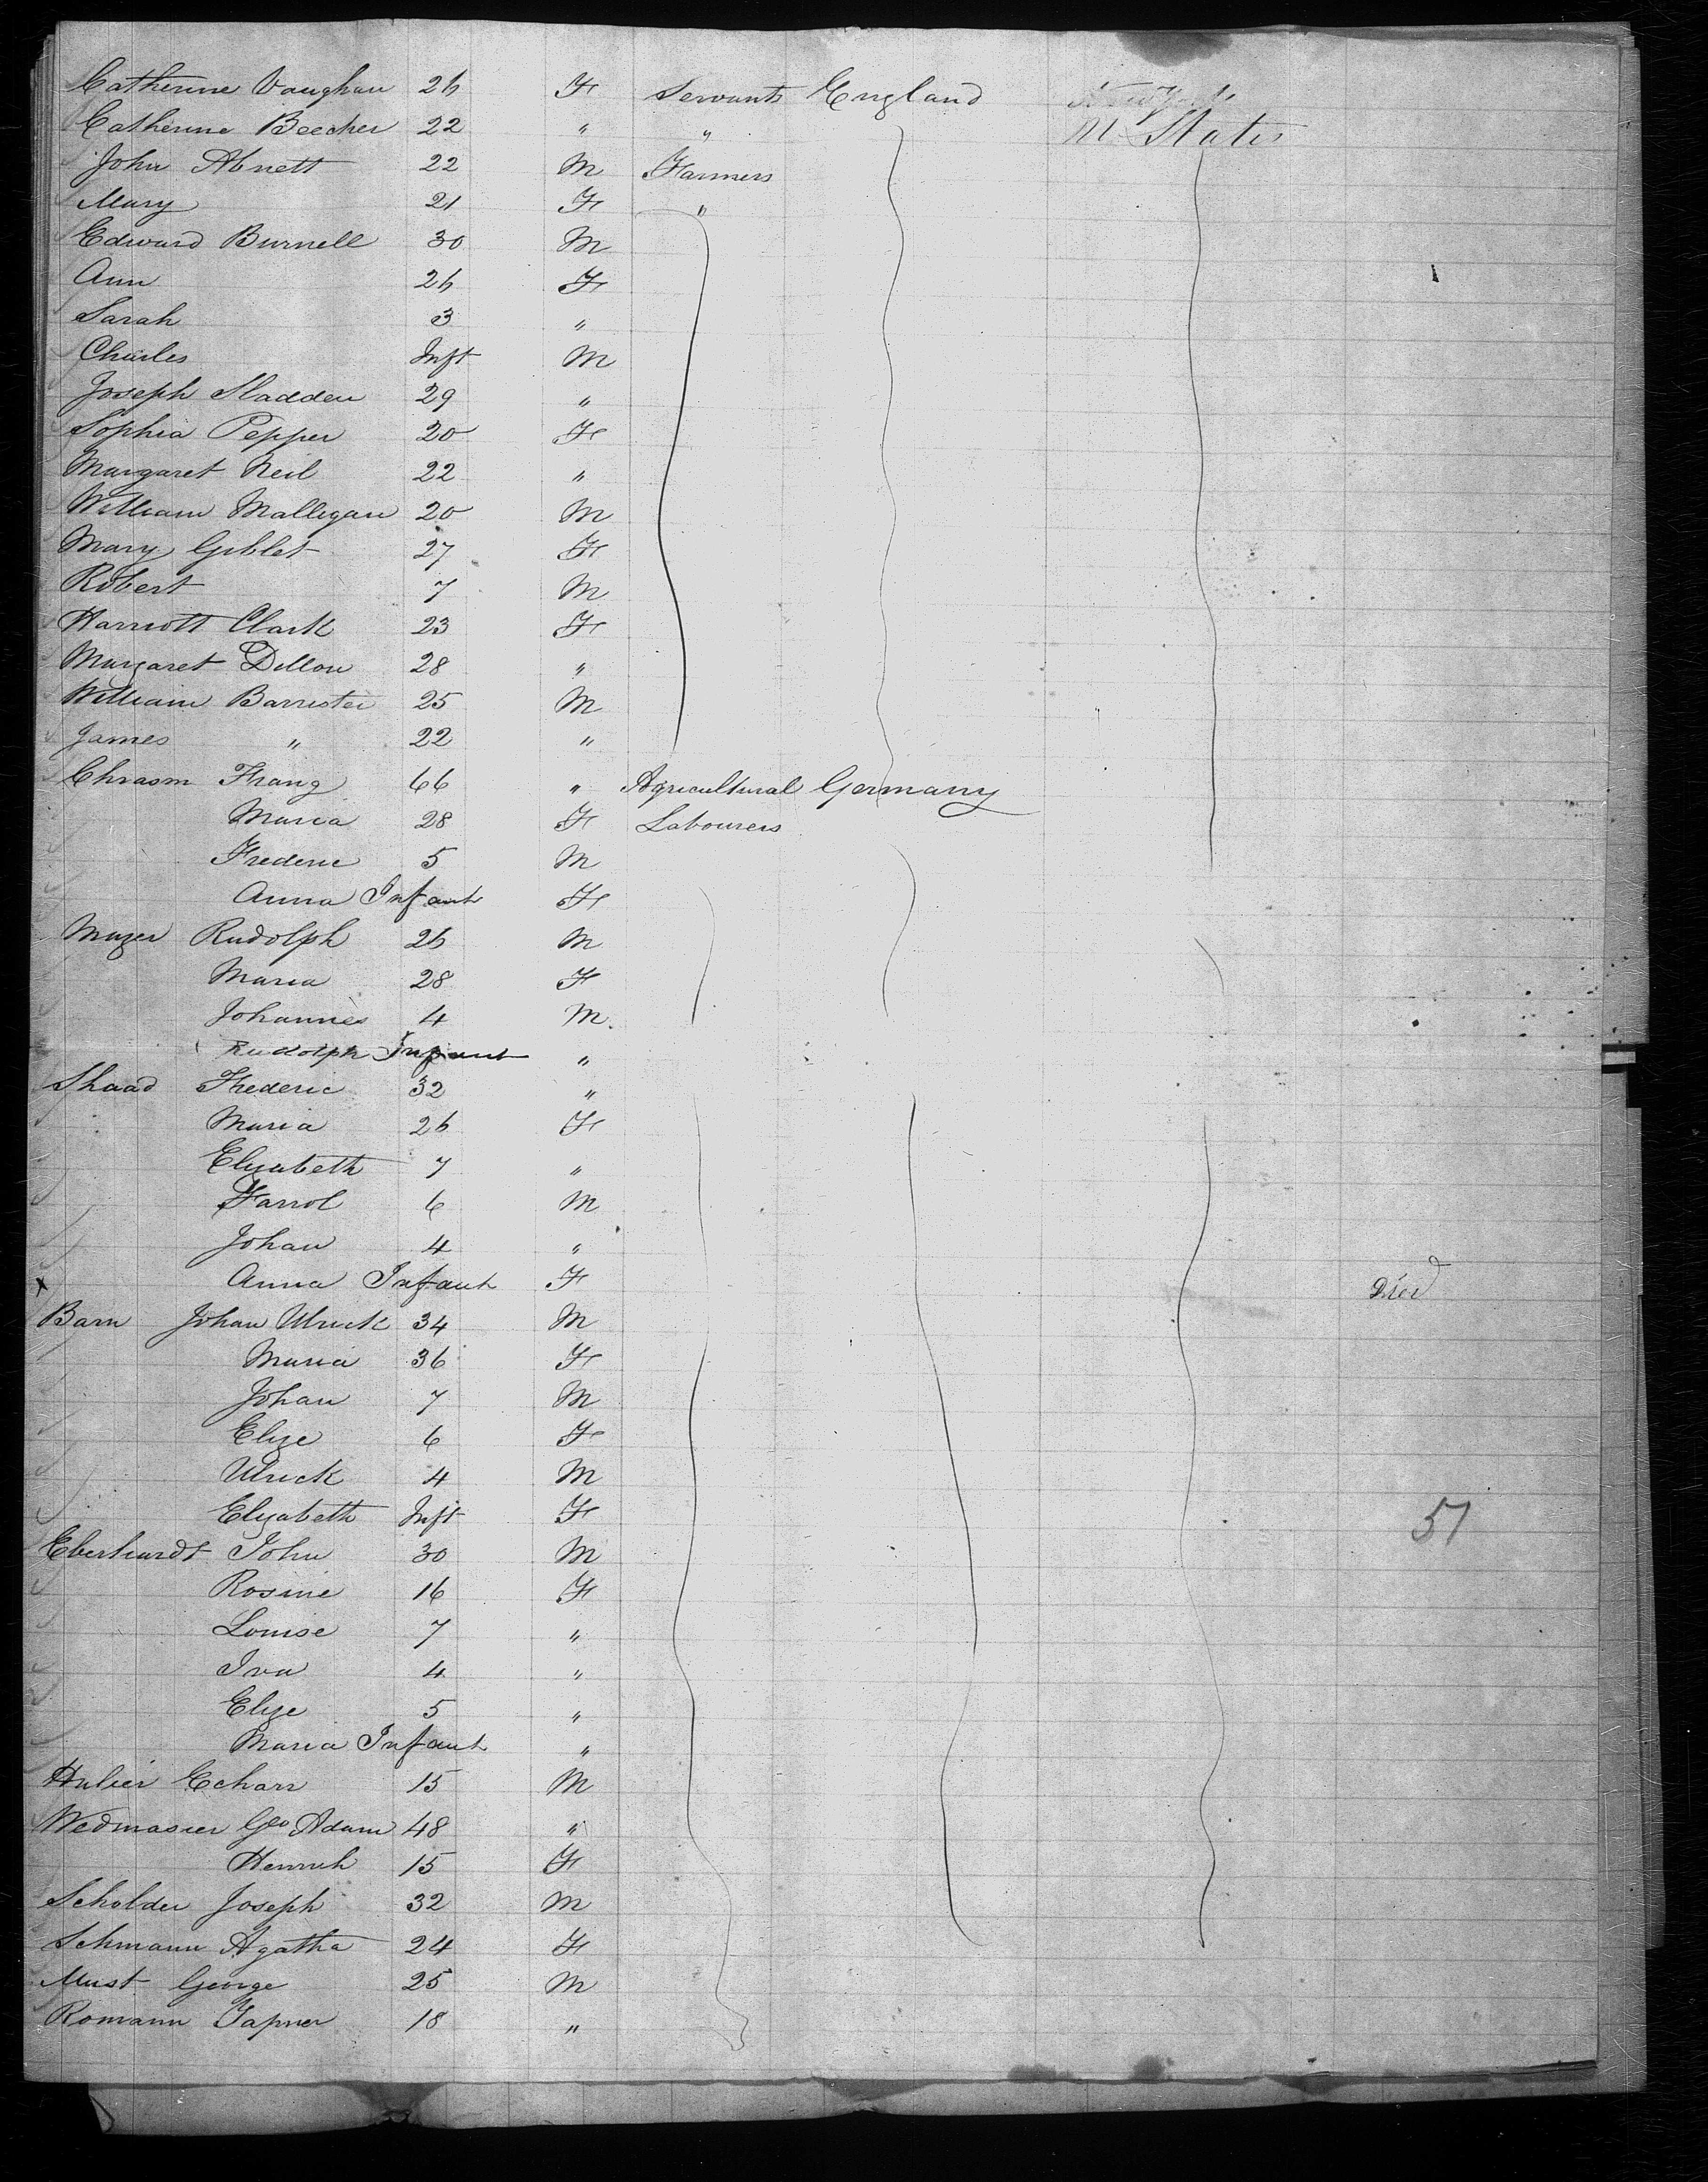 Catherine Vaughan 26 F Servants England New York
Catherine Beecher 22 " " U States
John Abnett 22 M Farmers
Mary 21 F "
Edward Burnell 30 M
Ann 26 F
Sarah 3 "
Charles Inft M
Joseph Sladden 29 "
Sophia Pepper 20 F
Margaret Neil 22 "
William Malligan 20 M
Mary Giblet 27 F
Robert 7 M
Harriott Clark 23 F
Margaret Dillon 28 "
William Barrister 25 M
James " 22 "
Chrasm Frang 66 " Agricultural Germany
Maria 28 F Labourers
Frederic 5 M
Anna Infant F
Muzer Rudolph 26 M
Maria 28 F
Johannes 4 M
Rudolph Infant "
Shaad Frederic 32 "
Maria 26 F
Elizabeth 7 "
Farrol 6 M
Johan 4 "
x Anna Infant F Died
Barn Johan Ulrick 34 M
Maria 36 F
Johan 7 M
Elize 6 F
Ulrick 4 M
Elizabeth Inft F
51
Eberhardt John 30 M
Rosine 16 F
Louise 7 "
Iva 4 "
Elize 5 "
Maria Infant "
Hulier Echarr 15 M
Wedmasier Geo Adam 48 "
Henrich 15 F
Scholder Joseph 32 M
Schmann Agatha 24 F
Must George 25 M
Romann Japner 18 "